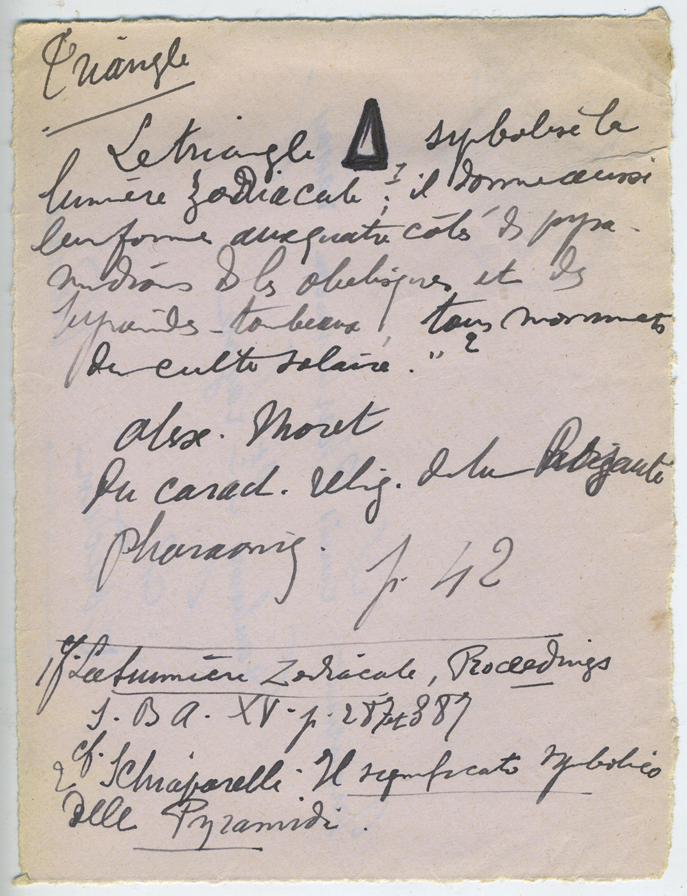 Triangle
Le triangle symbolise la
lumière zodiacale ;¹ il donne aussi
leur forme aux quatre côtés ds pyra-
midions de ls obélisques et des
pyramides - tombeaux, tous monuments
du culte solaire." ²
Alex. Moret
Du caract. relig. de la
pharaoniq. p. 42
1 cf. La Lumière Zodiacale, Proceedings
S. B A. XV. p. 387
2 cf. Schiaparelli - Il significato symbolico
delle Pyramidi.